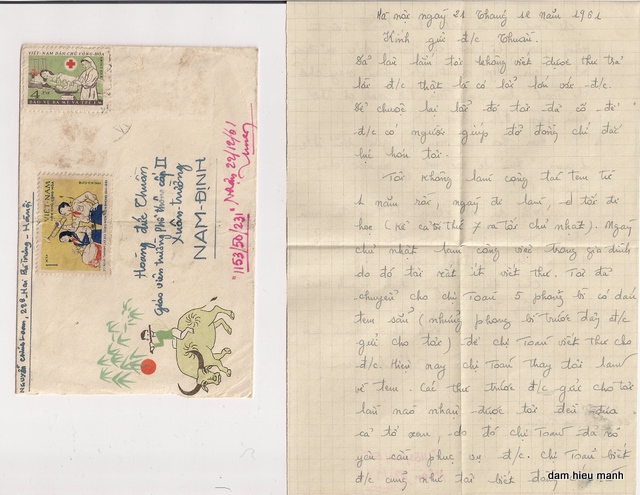 VIỆT-NAM DÂN CHỦ CỘNG HÒA
4 xu
BẢO VỆ BÀ MẸ VÀ TRẺ EM
VIỆT NAM
1
Hoàng đức Thuần
Giáo viên trường Phổ thông cấp II
Xuân-trường
NAM-ĐỊNH
"1153/50/231" Nhận 22/12/61
Hà nội ngày 21 tháng 12 năm 1961
Kính gửi đ/c Thuần.
Đã lâu lắm tôi không viết được thư trả
lời đ/c thật là có lỗi lớn với đ/c.
Để chuộc lại lỗi đó tôi đã cố để
đ/c có người giúp đỡ đồng chí đắc
lực hơn tôi.
Tôi không làm công tác tem từ
1 năm rồi, ngày đi làm, tối đi
học (kể cả tối thứ 7 và tối chủ nhật). Ngày
chủ nhật làm công việc trong gia đình
do đó tôi rất ít viết thư. Tôi đã
chuyển cho chị Toán 5 phong bì có dán
tem sẵn (những phong bì trước đây đ/c
gửi cho tôi) để chị Toán viết thư cho
đ/c. Hiện nay chị Toán thay tôi làm
về tem. Các thư trước đ/c gửi cho tôi
lần nào nhận được tôi đều đưa
cả tổ xem, do đó chị Toán đã rõ
yêu cầu phục vụ đ/c. Chị Toán biết
đ/c cũng như tôi biết
dam hieu manh